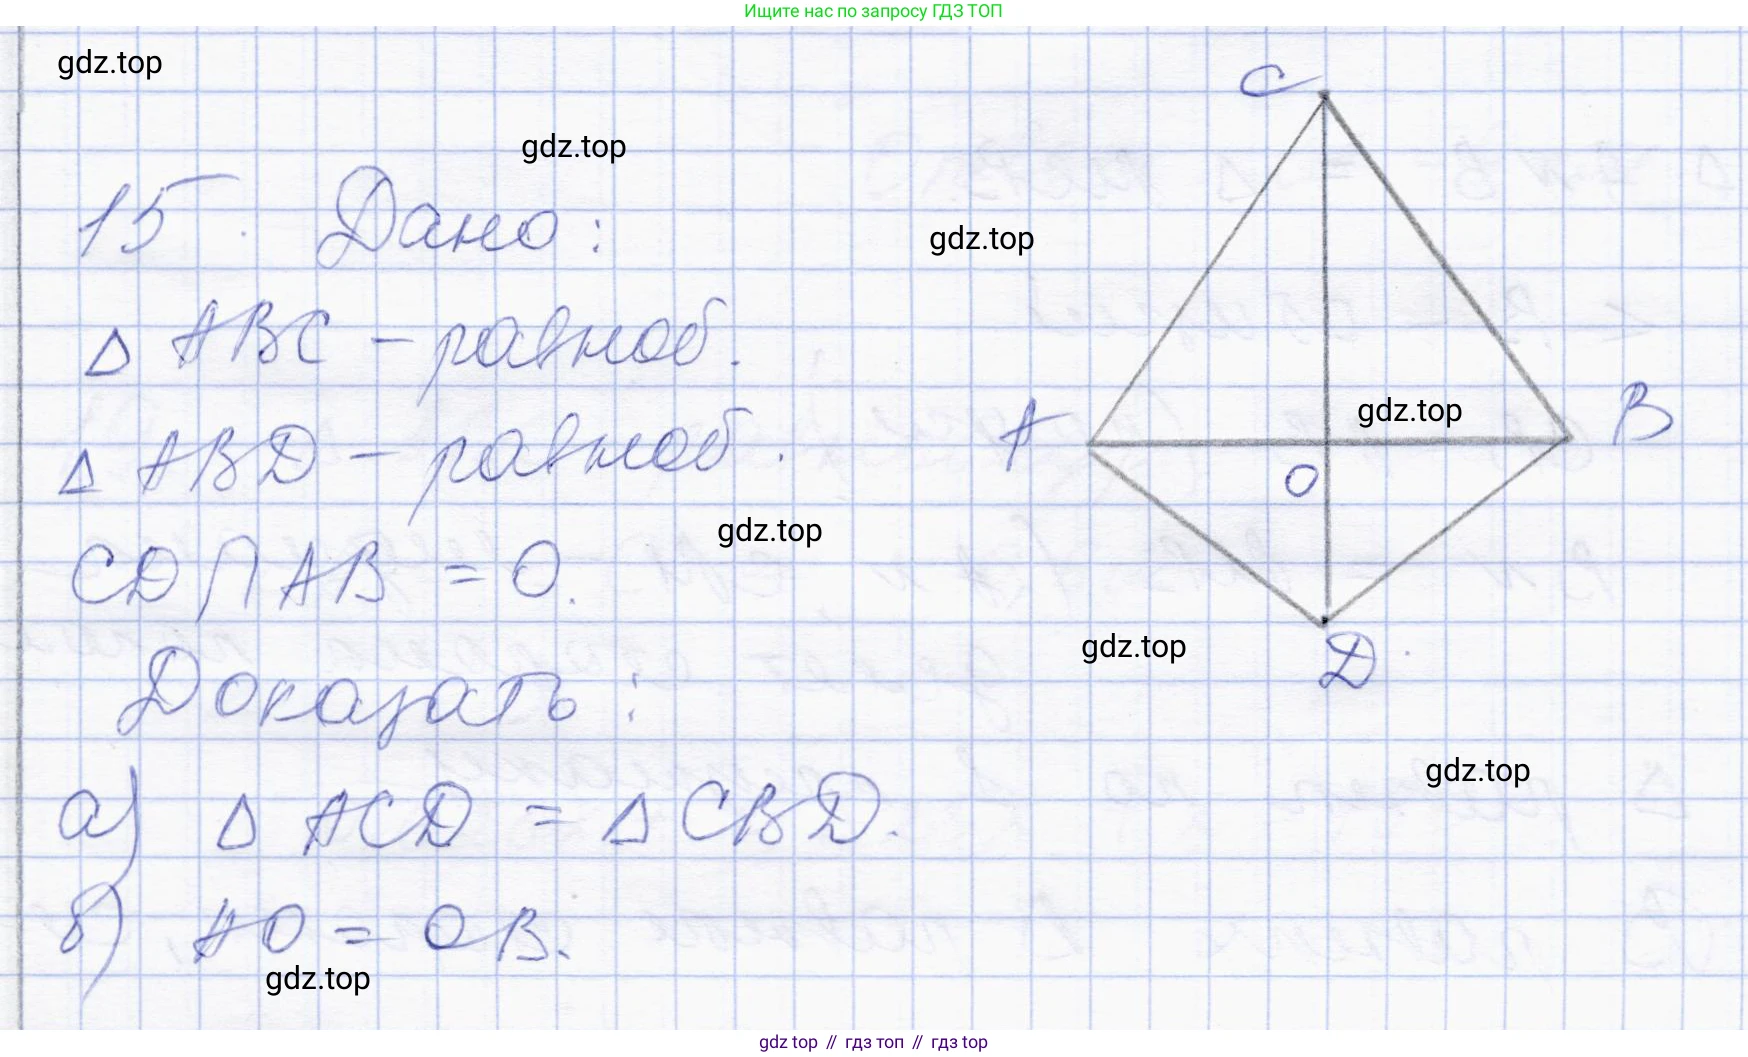 Ищите нас по запросу ГДЗ ТОП
gdz.top
gdz.top
C
15. Дано:
gdz.top
△ ABC – равноб.
gdz.top
A
B
△ ABD – равноб.
O
gdz.top
CD ∩ AB = O.
gdz.top
D
Доказать:
gdz.top
а) △ ACD = △ CBD.
б) AO = OB.
gdz.top
gdz top // гдз топ // гдз top